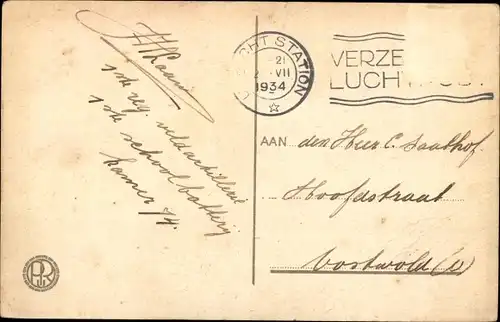 1ste reg. veldartillerie
1ste schoolbatterij
kamer 74.
CHT STATION
21
VII
1934
VERZE
LUCH
AAN den Heer C. Saathof
Hoofdstraat
Oostwold